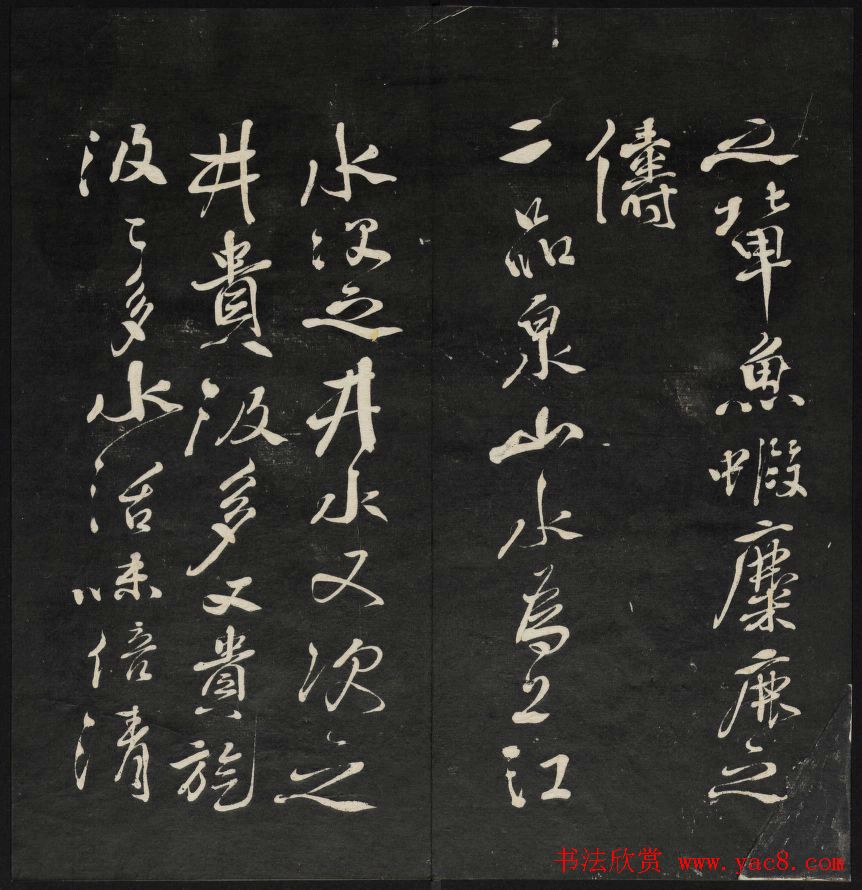 之輩魚蝦麋鹿之
儔
二品泉山水為上江
水次之井水又次之
井貴汲多又貴旋
汲〻多水活味倍清
书法欣赏 www.yac8.com